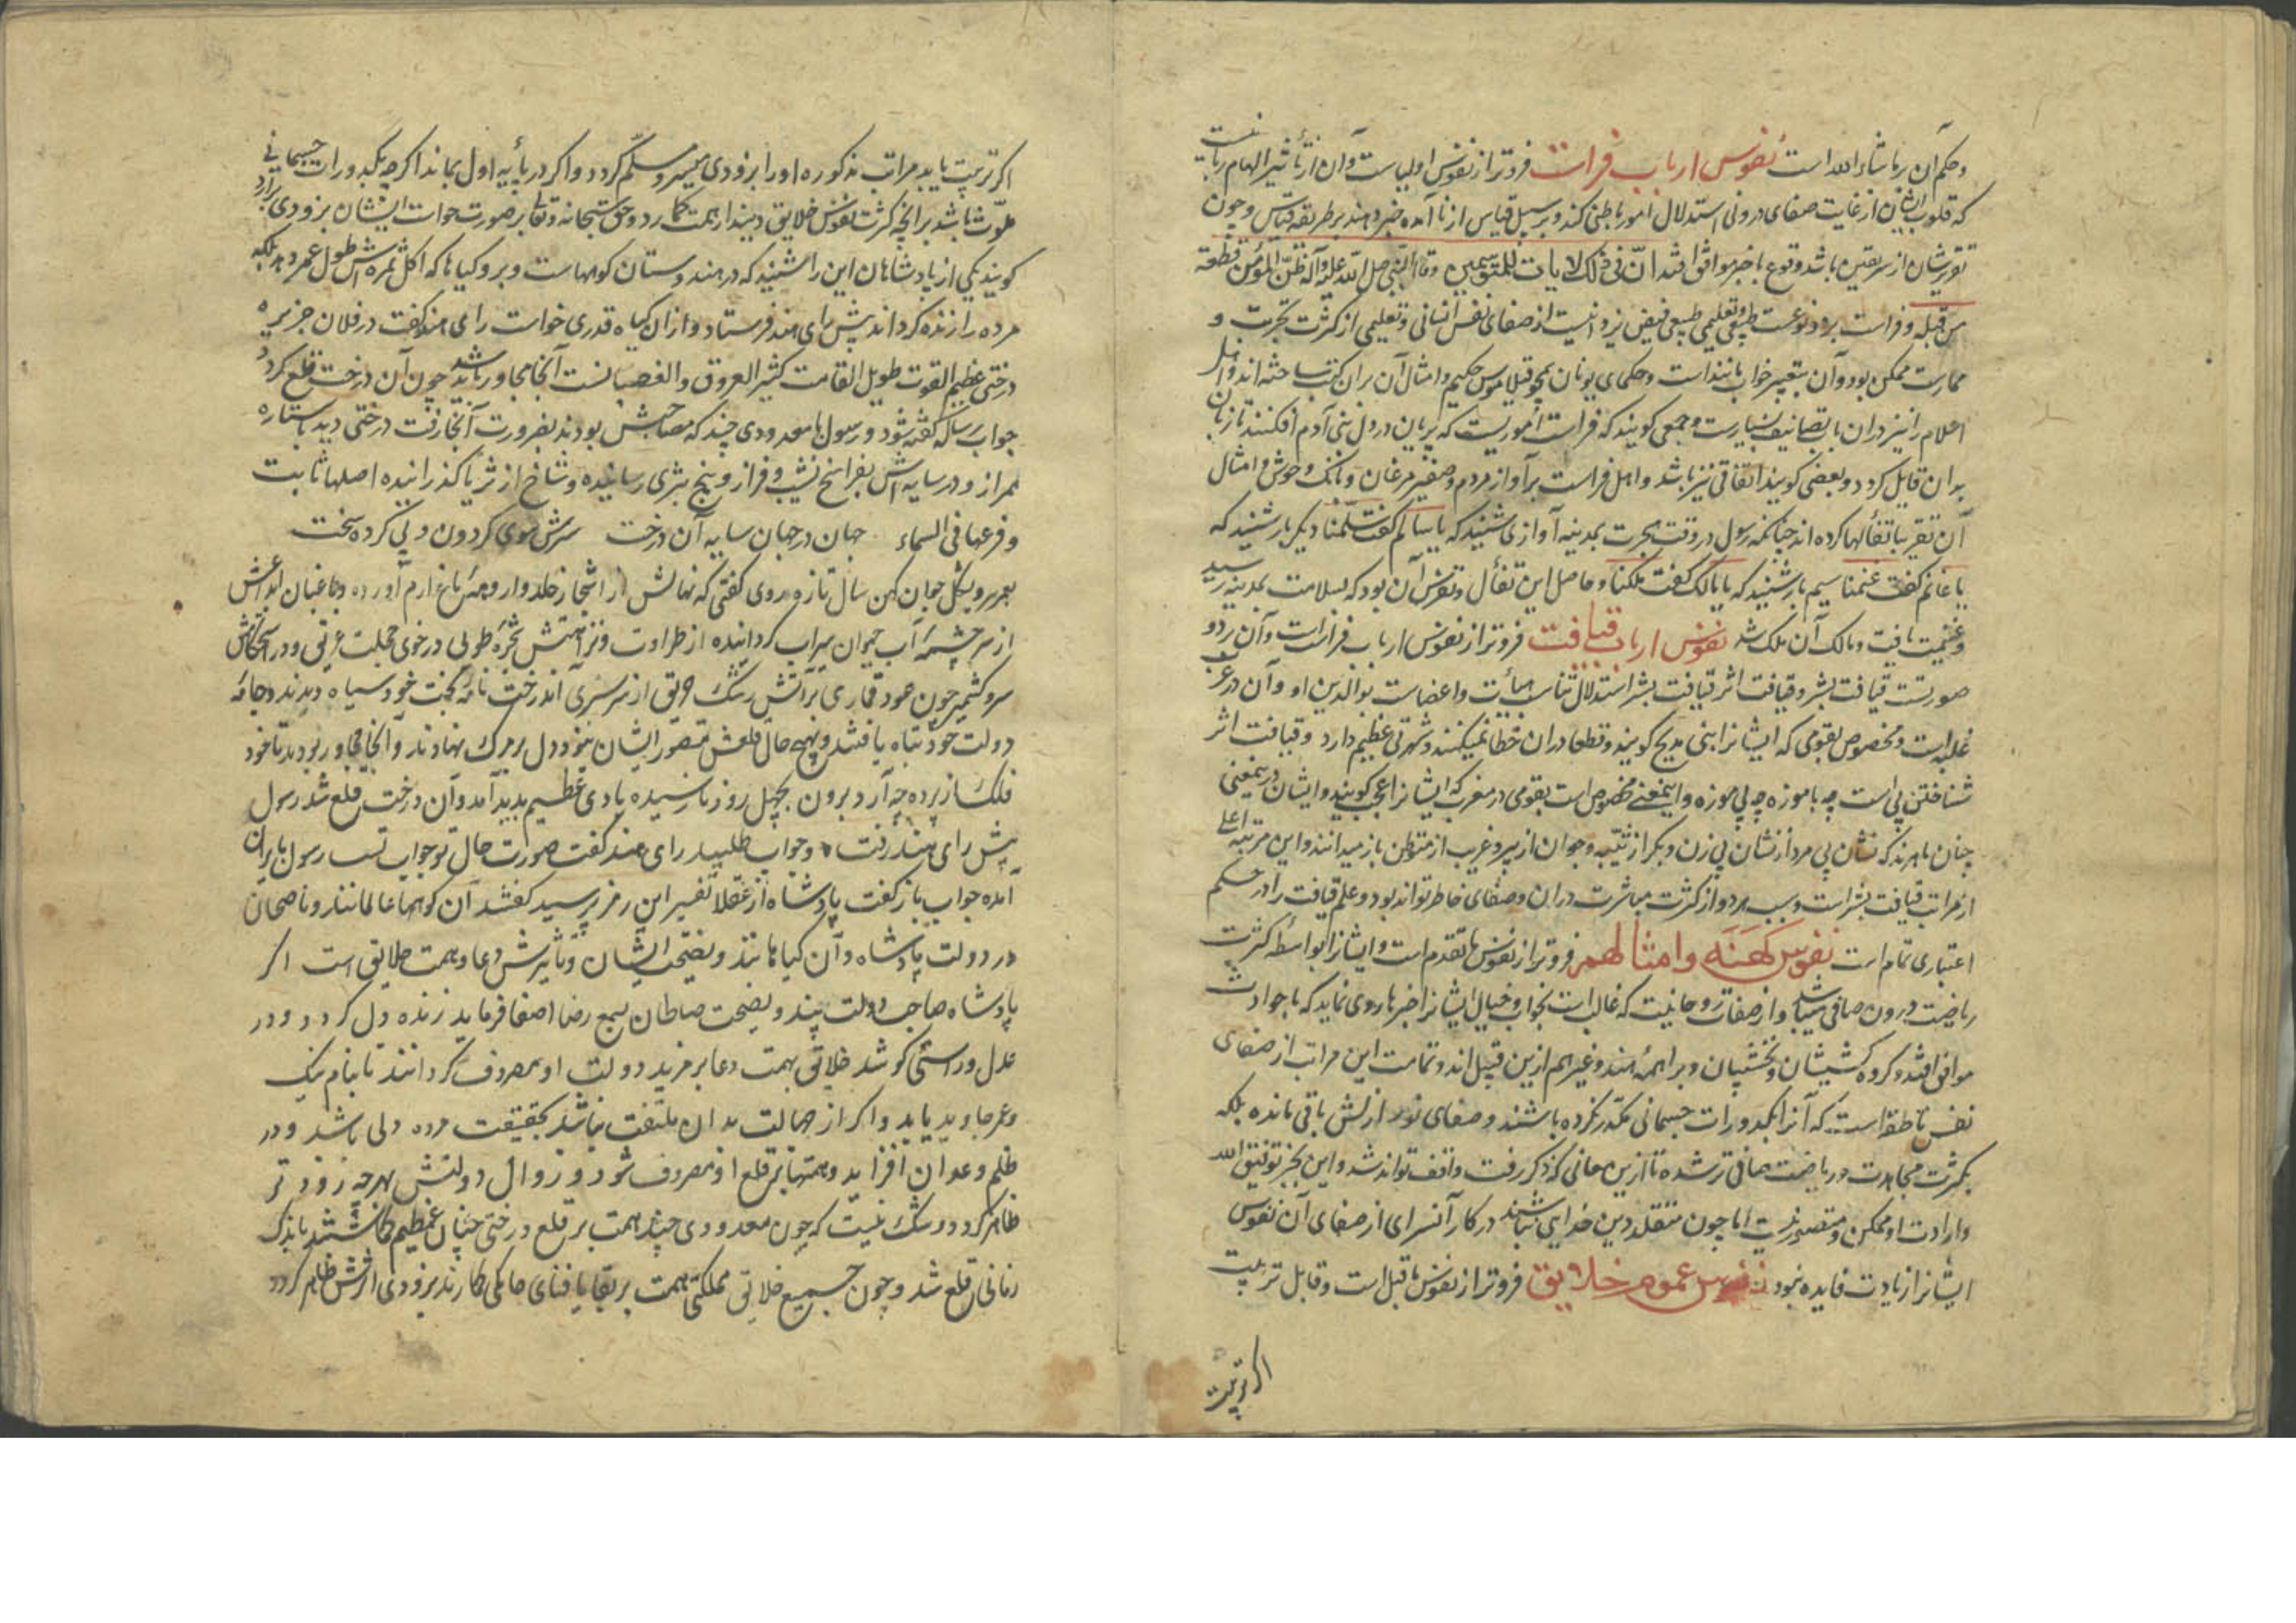 وحکم آن بر ما شاء الله است نفوس ارباب فراست فروتر از نفوس اولیاست و آن از تأثیر الهام ربانیست
که قلوب ایشان از غایت صفای درونی استدلال امور باطنی کند و بر سبیل قیاس از نا آمده خبر دهند بر طریقه قیاس و چون
تقریرشان از سر یقین باشد وقوع با خبر موافق افتد انّ فی ذلک لایات للمتوسمین وقال النبی صلی الله علیه وآله ظنّ المؤمن قطعة
من قبله و فراست بر دو نوعست طبیعی و تعلیمی طبیعی فیض یزدانیست از صفای نفس انسانی و تعلیمی از کثرت تجربت و
ممارست ممکن بود و آن بتعبیر خواب مانند است و حکمای یونان همچو فیلاموس حکیم و امثال آن بران کتب ساخته‌اند و اهل
اعلام را نیز دران باب تصانیف بسیارست و جمعی گویند که فراست اموریست که پریان در دل بنی آدم افکنند تا زبان
بدان قایل کردد و بعضی کویند اتفاقی نیز باشد و اهل فراست بر آواز مردم و صفیر مرغان و بانک وحوش و امثال
آن تقریبا تفألها کرده اند چنانکه رسول در وقت هجرت بمدینه آوازی شنید که یا سالم کفت سلّمنا دیکر بار شنید که
یا غانم کفت غنمنا سیم بار شنید که یا مالک کفت ملکنا و حاصل این تفأل و تفرس آن بود که بسلامت بمدینه رسید
و غنیمت یافت و مالک آن ملک شد نفوس ارباب قیافت فروتر از نفوس ارباب فراست است و آن بر دو
صورتست قیافت بشر و قیافت اثر قیافت بشر استدلال تناسب هیأت و اعضاست بوالدین او و آن در عرب
غلبه است و مخصوص بقومی که ایشانرا بنی مدلج کویند و قطعا دران خطا نمیکنند و شهرتی عظیم دارد و قیافت اثر
شناختن پی است چه با موزه چه بی موزه و این معنی مخصوص است بقومی در مغرب که ایشانرا عجب کویند و ایشان درین معنی
چنان ماهرند که نشان پی مرد از نشان پی زن و بکر از ثیّبه و جوان از پیر و غریب از متوطن باز میدانند و این مرتبه اعلی
از مراتب قیافت بشر است و سبب هر دو از کثرت مباشرت دران و صفای خاطر تواند بود و علم قیافت را در حکم
اعتباری تمام است نفوس کهنه وامثالهم فروتر از نفوس ما تقدم است و ایشانرا بواسطه کثرت
ریاضت درون صافی میباشد و از صفات روحانیت که غالب است بخواب و خیال ایشانرا خبرها روی نماید که با حوادث
موافق افتد و کروه کشیشان و بخشیان و براهمهٔ هند و غیرهم ازین قبیل اند و تمامت این مراتب از صفای
نفس ناطقه است که آنرا بکدورات جسمانی مکدر نکرده باشند و صفای نور ازلش باقی مانده بلکه
بکثرت مجاهدت و ریاضت صافی تر شده تا ازین معانی که ذکر رفت واقف تواند شد و این بجز توفیق الله
و ارادت او ممکن و متصور نیست اما چون متقلد دین خدایی نباشند در کار آنسرای از صفای آن نفوس
ایشانرا زیادت فایده نبود نفوس عموم خلایق فروتر از نفوس ما قبل است و قابل تربیت
اکر تربیت
اکر تربیت یابد مراتب مذکوره او را بزودی میسر و مسلّم کردد و اکر در پایه اول بماند اکر چه بکدورات جسمانی
ملوّث باشد بر انچه کثرت نفوس خلایق دیندار همت کمارد و حق سبحانه وتعالی بر صورت خواست ایشان بزودی برآرد
کویند یکی از پادشاهان این را شنید که در هندوستان کوهاست و برو کیاها که اکل ثمره‌اش طول عمر دهد بلکه
مرده را زنده کرداند پیش رای هند فرستاد و ازان کیاه قدری خواست رای هند کفت در فلان جزیره
درختی عظیم القوت طویل القامت کثیر العروق و الغصانست آنجا مجاور باید شد چون آن درخت قلع کردد
جواب رسالت کفته شود و رسول با معدودی چند که مصاحبش بودند بضرورت آنجا رفت درختی دید با ستاره
همراز و در سایه‌اش بفراسخ نشیب و فراز و بیخ بثری رسانیده و شاخ از ثریا گذرانیده اصلها ثابت
و فرعها فی السماء جهان در جهان سایه آن درخت سرش سوی کردون و پی کرده سخت
بعمر پیر و بشکل جوان کهن سال تازه روی کفتی که نهالش از اشجار خلد وار و مه باغ ارم آورده و باغبان ابداعش
از سر چشمهٔ آب حیوان سیراب کردانیده از طراوت و نزاهتش شجرهٔ طوبی در خوی خجلت غرقی و در استحکامش
سرو کشمیر چون عود قماری بر آتش رشک حریق از سر سری آن درخت نامه بخت خود سیاه دیدند و جامهٔ
دولت خود تباه یافتند و بهیچ حال قلعش متصور ایشان نبود دل بر مرک نهادند و آنجا مجاور بودند تا خود
فلک از پرده چه آرد برون بچهل روز نارسیده بادی عظیم پدید آمد و آن درخت قلع شد رسول
پیش رای هند رفت و جواب طلبید رای هند کفت صورت حال تو جواب تست رسول با ایران
آمده جواب باز کفت پادشاه از عقلا تفسیر این رمز پرسید کفتند آن کوهها عالمانند و ناصحان
در دولت پادشاه و آن کیاها پند و نصیحت ایشان و تأثیرش دعا و همت خلایق است اکر
پادشاه صاحب دولت پند و نصیحت صالحان بسمع رضا اصغا فرماید زنده دل کردد و در
عدل و راستی کوشد خلایق همت دعا بر مزید دولت او مصروف کردانند تا بنام نیک
و عمر جاوید یابد و اکر از جهالت بدان ملتفت نباشد بحقیقت مرده دلی باشد و در
ظلم و عدوان افزاید و همتها بر قلع او مصروف شود و زوال دولتش بهر چه زودتر
ظاهر کردد و شک نیست که چون معدودی چند همت بر قلع درختی چنان عظیم کماشتند باندک
زمانی قلع شد و چون جمیع خلایق مملکتی همت بر بقا یا فنای حاکمی کمارند بزودی اثرش ظاهر کردد